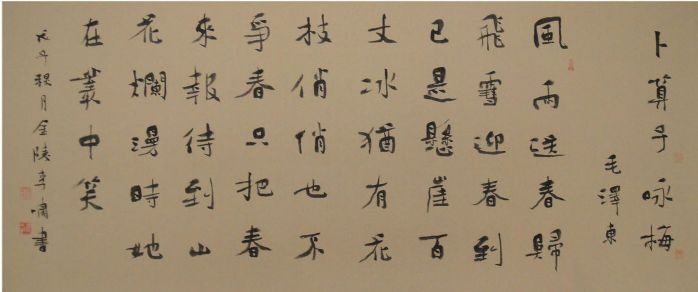 卜算子咏梅
毛澤東
風雨送春歸
飛雪迎春到
已是懸崖百
丈冰猶有花
枝俏俏也不
爭春只把春
來報待到山
花爛漫時她
在叢中笑
月金陵李嘯書